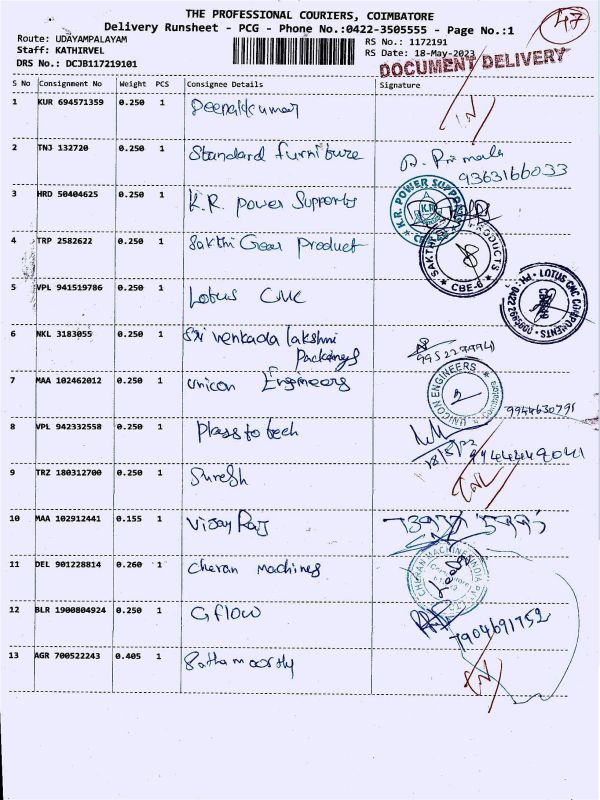 THE PROFESSIONAL COURIERS, COIMBATORE
47
Delivery Runsheet - PCG - Phone No.:0422-3505555 - Page No.:1
Route: UDAYAMPALAYAM
RS No.: 1172191
Staff: KATHIRVEL
RS Date: 18-May-2023
DRS No.: DCJB117219101
DOCUMENT DELIVERY
S No Consignment No Weight PCS Consignee Details Signature
1 KUR 694571359 0.250 1 Deepakkumar
2 TNJ 132720 0.250 1 Standard furniture
9363166033
3 HRD 50404625 0.250 1 K.R. Power Supports
K.R. POWER SUPPORTS
4 TRP 2582622 0.250 1 Sakthi Gear Product
SAKTHI PRODUCTS
CBE-6
5 VPL 941519786 0.250 1 Lotus CNC
LOTUS CNC COMPONENTS
6 NKL 3183055 0.250 1 Sri Venkada lakshmi
Packaings
7 MAA 102462012 0.250 1 Unicon Engineers
UNICON ENGINEERS
9944630791
8 VPL 942332558 0.250 1 plassto tech
9 TRZ 180312700 0.250 1 Suresh
10 MAA 102912441 0.155 1 Vijay Raj
11 DEL 901228814 0.260 1 Cheran machines
CHERAN MACHINES INDIA
12 BLR 1900804924 0.250 1 Gflow
7904691752
13 AGR 700522243 0.405 1 Sathamoorthy